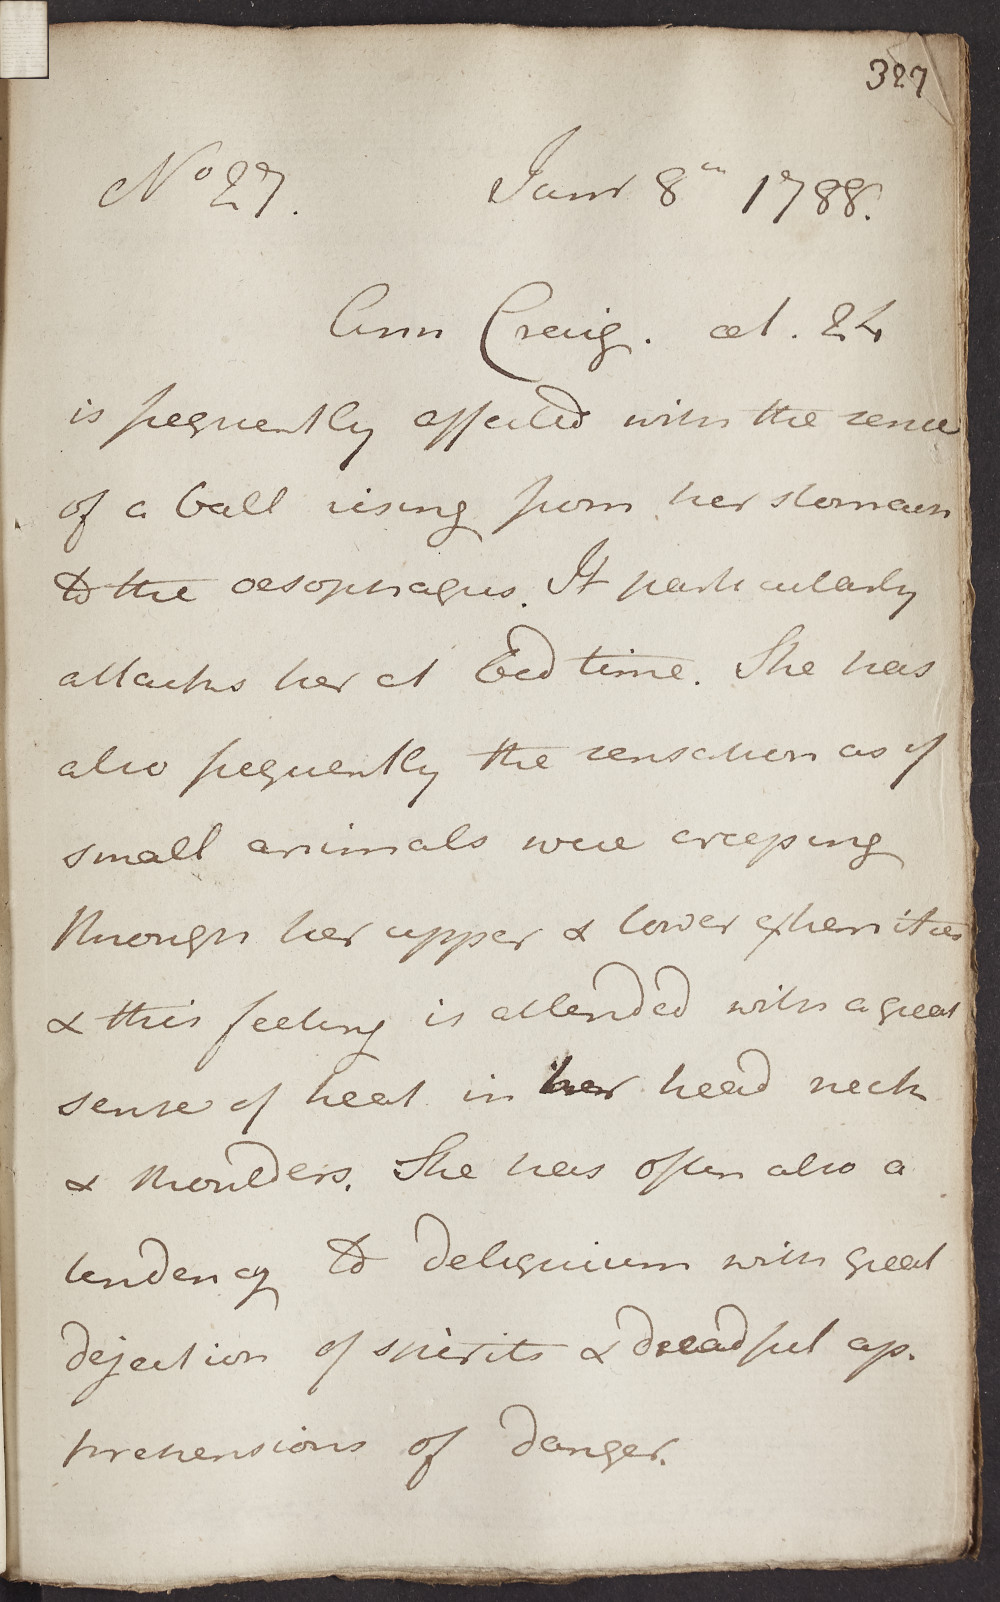 327
No 27. Janr 8th 1788.
Ann Craig. æt. 24
is frequently affected with the sense
of a ball rising from her stomach
to the oesophagus. It particularly
attacks her at Bed time. She has
also frequently the sensation as if
small animals were creeping
through her upper & lower extremities
& this feeling is attended with a great
sense of heat in her head neck
& shoulders. She has often also a
tendency to deliquium with great
dejection of spirits & dreadful ap-
prehensions of danger.